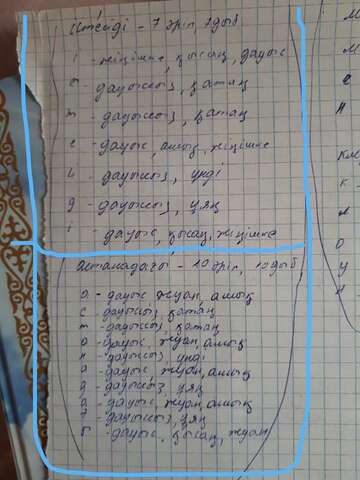 Итенді - 7 әріп, 7 дыб
і - жіңішке, қысаң, дауыс
т - дауыссыз, қатаң
т - дауыссыз, қатаң
е - дауыс, ашық, жіңішке
н - дауыссыз, үнді
д - дауыссыз, ұяң
і - дауыс, қысаң, жіңішке
Астанадағы - 10 әріп, 10 дыб
а - дауыс, жуан, ашық
с - дауыссыз, қатаң
т - дауыссыз, қатаң
а - дауыс, жуан, ашық
н - дауыссыз, үнді
а - дауыс, жуан, ашық
д - дауыссыз, ұяң
а - дауыс, жуан, ашық
ғ - дауыссыз, ұяң
ы - дауыс, қысаң, жуан